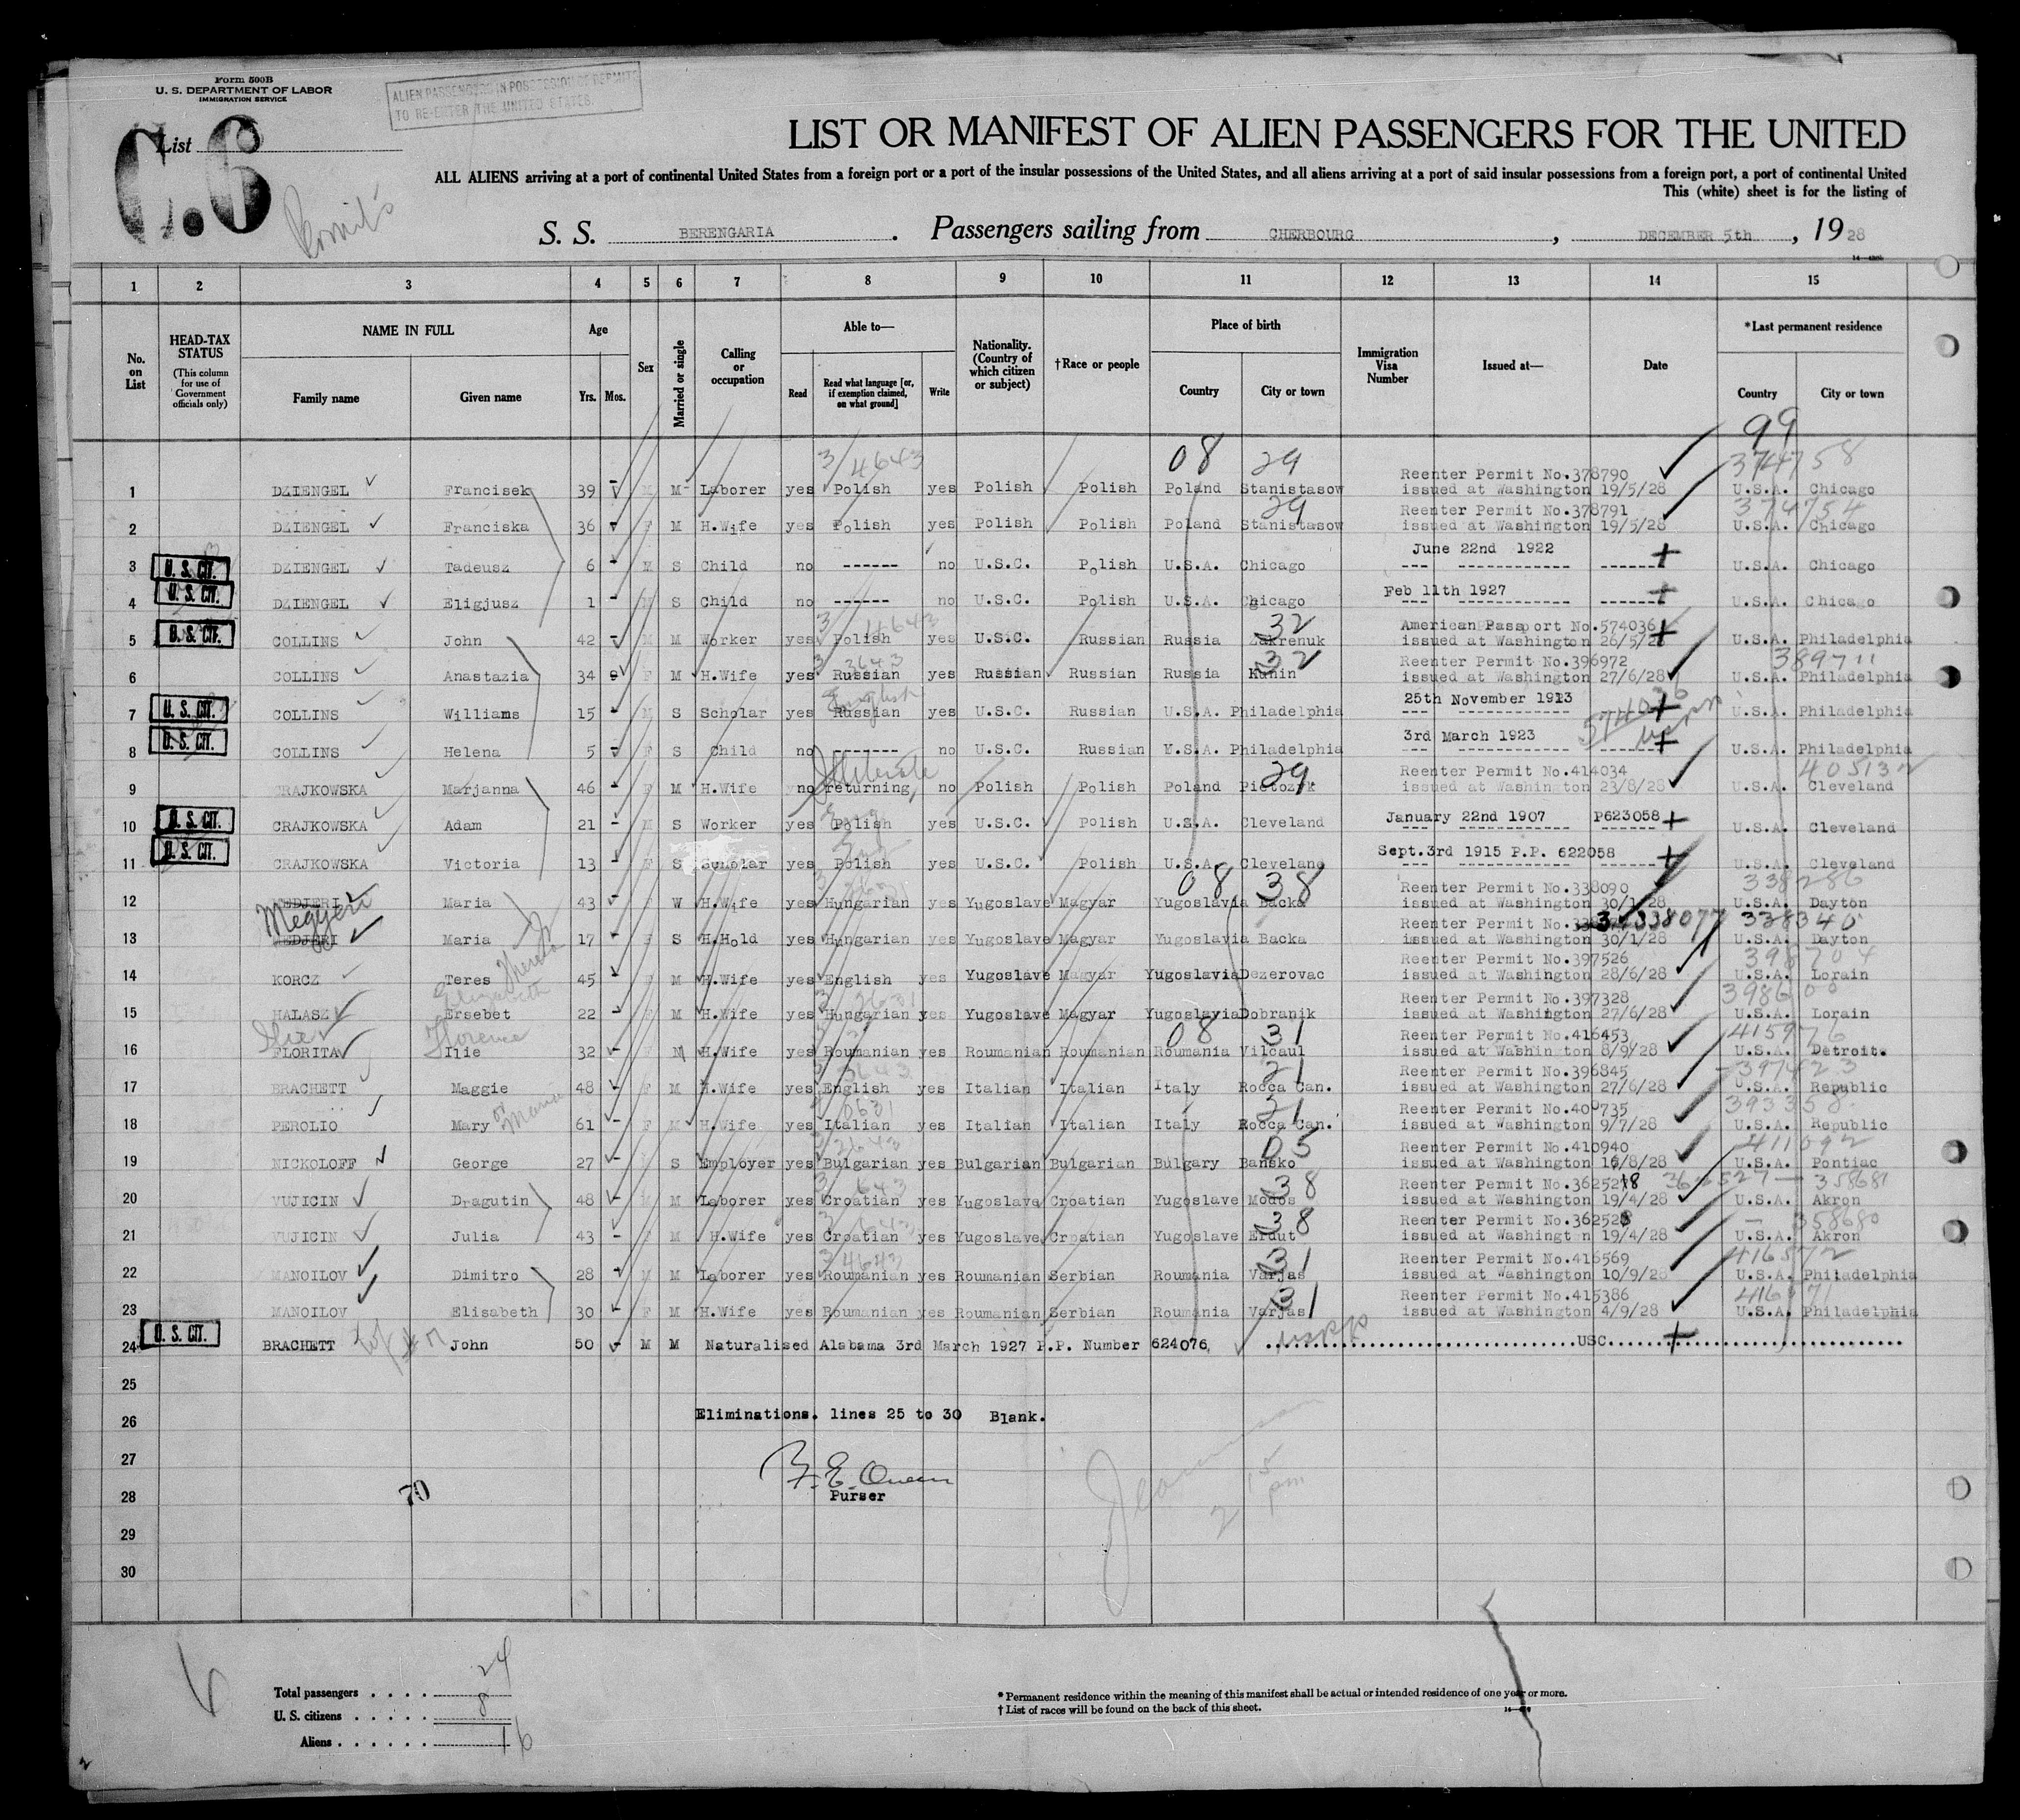 Form 500B
U. S. DEPARTMENT OF LABOR
IMMIGRATION SERVICE
ALIEN PASSENGERS IN POSSESSION OF PERMITS
TO RE-ENTER THE UNITED STATES.
List
C.6
Permits
LIST OR MANIFEST OF ALIEN PASSENGERS FOR THE UNITED
ALL ALIENS arriving at a port of continental United States from a foreign port or a port of the insular possessions of the United States, and all aliens arriving at a port of said insular possessions from a foreign port, a port of continental United
This (white) sheet is for the listing of
S. S. BERENGARIA . Passengers sailing from CHERBOURG , DECEMBER 5th , 19 28
1 2 3 4 5 6 7 8 9 10 11 12 13 14 15
No. on List
HEAD-TAX STATUS
(This column for use of Government officials only)
NAME IN FULL
Family name Given name
Age
Yrs. Mos.
Sex
Married or single
Calling or occupation
Able to—
Read Read what language [or, if exemption claimed, on what ground] Write
Nationality. (Country of which citizen or subject)
†Race or people
Place of birth
Country City or town
Immigration Visa Number
Issued at—
Date
*Last permanent residence
Country City or town
99
3/4643 08 29 Reenter Permit No.378790 374758
1 DZIENGEL Francisek 39 - M M Laborer yes Polish yes Polish Polish Poland Stanistasow issued at Washington 19/5/28 U.S.A. Chicago
29 Reenter Permit No.378791 374754
2 DZIENGEL Franciska 36 - F M H.Wife yes Polish yes Polish Polish Poland Stanistasow issued at Washington 19/5/28 U.S.A. Chicago
June 22nd 1922
3 U. S. CIT. DZIENGEL Tadeusz 6 - M S Child no ------ no U.S.C. Polish U.S.A. Chicago --- ------------ ------ U.S.A. Chicago
Feb 11th 1927
4 U. S. CIT. DZIENGEL Eligjusz 1 - M S Child no ------ no U.S.C. Polish U.S.A. Chicago --- ------------ ------ U.S.A. Chicago
32 American Passport No.574036
5 U. S. CIT. COLLINS John 42 - M M Worker yes Polish yes U.S.C. Russian Russia Zakrenuk issued at Washington 26/5/2 U.S.A. Philadelphia
3643 32 Reenter Permit No.396972 389711
6 COLLINS Anastazia 34 9 F M H.Wife yes Russian yes Russian Russian Russia Kunin issued at Washington 27/6/28 U.S.A. Philadelphia
English 25th November 1913
7 U. S. CIT. COLLINS Williams 15 - M S Scholar yes Russian yes U.S.C. Russian U.S.A. Philadelphia --- ------------ U.S.A. Philadelphia
574036 3rd March 1923
8 U. S. CIT. COLLINS Helena 5 - F S Child no ------ no U.S.C. Russian U.S.A. Philadelphia --- ------------ ------ U.S.A. Philadelphia
Illiterate 29 Reenter Permit No.414034 405132
9 CRAJKOWSKA Marjanna 46 - F M H.Wife no returning, no Polish Polish Poland issued at Washin ton 23/8/28 U.S.A. Cleveland
Eng January 22nd 1907 P623058
10 U. S. CIT. CRAJKOWSKA Adam 21 - M S Worker yes Polish yes U.S.C. Polish U.S.A. Cleveland --- ------------ ------ U.S.A. Cleveland
Eng Sept.3rd 1915 P.P. 622058
11 U. S. CIT. CRAJKOWSKA Victoria 13 - F S Scholar yes Polish yes U.S.C. Polish U.S.A. Cleveland --- ------------ ------ U.S.A. Cleveland
08 38 Reenter Permit No.338090 338286
12 MEDJERI Maria 43 F W H.Wife yes Hungarian yes Yugoslave Magyar Yugoslavia Backa issued at Washington 30/1/28 U.S.A. Dayton
Megyeri Reenter Permit No. 338077 338340
13 MEDJERI Maria 17 F S H.Hold yes Hungarian yes Yugoslave Magyar Yugoslavia Backa issued at Washington 30/1/28 U.S.A. Dayton
Theresa Reenter Permit No.397526 398704
14 KORCZ Teres 45 - F M H.Wife yes English yes Yugoslave Magyar Yugoslavia Dezerovac issued at Washington 28/6/28 U.S.A. Lorain
Elizabeth Reenter Permit No.397328 398600
15 HALASZ Ersebet 22 - F M H.Wife yes Hungarian yes Yugoslave Magyar Yugoslavia Dobranik issued at Washington 27/6/28 U.S.A. Lorain
Ilie Florence 08 31 Reenter Permit No.416453 415976
16 FLORITA Ilie 32 - F M H.Wife yes Roumanian yes Roumanian Roumanian Roumania Vilcaul issued at Washin ton 8/9/28 U.S.A. Detroit.
3643 21 Reenter Permit No.396845 397423
17 BRACHETT Maggie 48 - F M H.Wife yes English yes Italian Italian Italy Rocca Can. issued at Washington 27/6/28 U.S.A. Republic
or Maria 0631 21 Reenter Permit No.400735 393358
18 PEROLIO Mary 61 - F M H.Wife yes Italian yes Italian Italian Italy Rocca Can. issued at Washington 9/7/28 U.S.A. Republic
2643 05 Reenter Permit No.410940 411092
19 NICKOLOFF George 27 - S Employer yes Bulgarian yes Bulgarian Bulgarian Bulgary Bansko issued at Washington 16/8/28 U.S.A. Pontiac
643 38 Reenter Permit No.362527 358681
20 VUJICIN Dragutin 48 - M M Laborer yes Croatian yes Yugoslave Croatian Yugoslave Modos issued at Washington 19/4/28 U.S.A. Akron
38 Reenter Permit No.362528 358680
21 VUJICIN Julia 43 - F M H.Wife yes Croatian yes Yugoslave Croatian Yugoslave Erdut issued at Washingt n 19/4/28 U.S.A. Akron
3/4643 31 Reenter Permit No.416569 416572
22 MANOILOV Dimitro 28 - M M Laborer yes Roumanian yes Roumanian Serbian Roumania Varjas issued at Washington 10/9/28 U.S.A. Philadelphia
31 Reenter Permit No.415386 416971
23 MANOILOV Elisabeth 30 - F M H.Wife yes Roumanian yes Roumanian Serbian Roumania Varjas issued at Washington 4/9/28 U.S.A. Philadelphia
24 U. S. CIT. BRACHETT John 50 - M M Naturalised Alabama 3rd March 1927 P.P. Number 624076, USPP USC
25
26 Eliminations. lines 25 to 30 Blank.
27
28 70 Purser
29
30
2 15 pm
Total passengers . . . . 24
U. S. citizens . . . . . 8
Aliens . . . . . . 16
* Permanent residence within the meaning of this manifest shall be actual or intended residence of one year or more.
† List of races will be found on the back of this sheet.